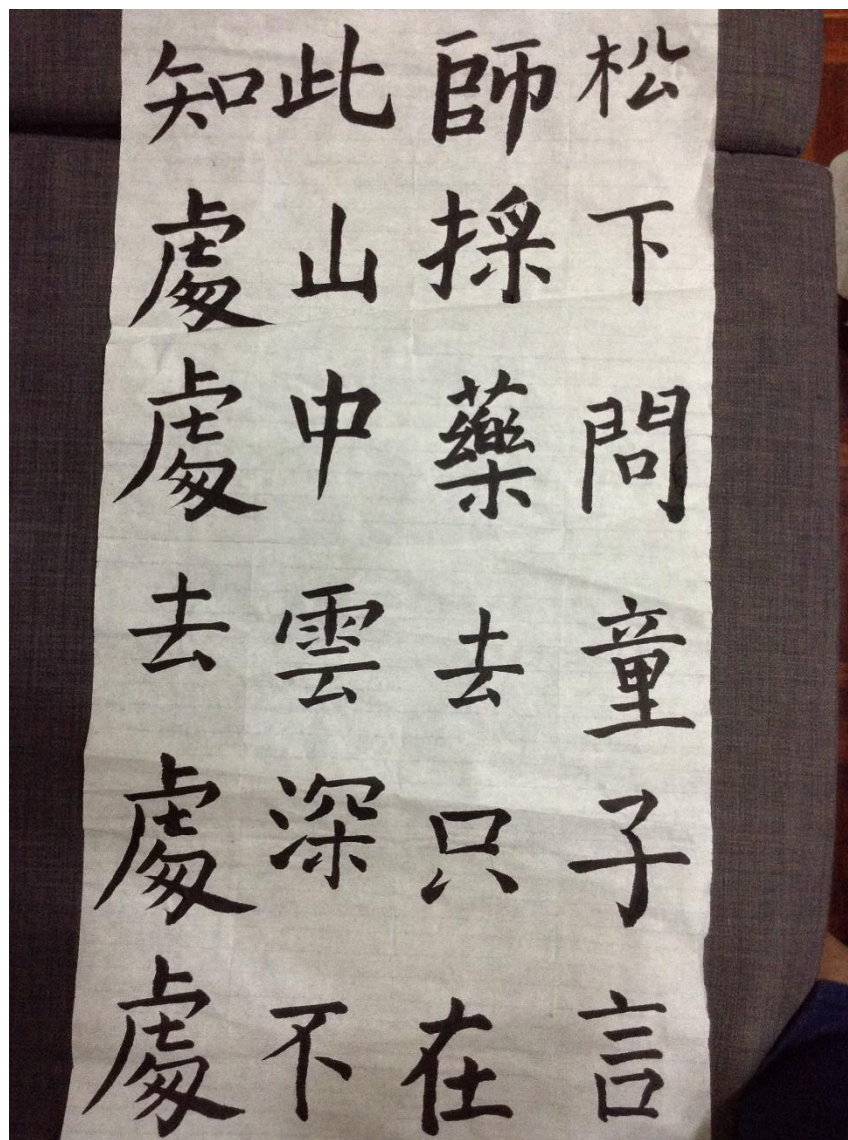 松下問童子言
師採藥去只在
此山中雲深不
知處處去處處